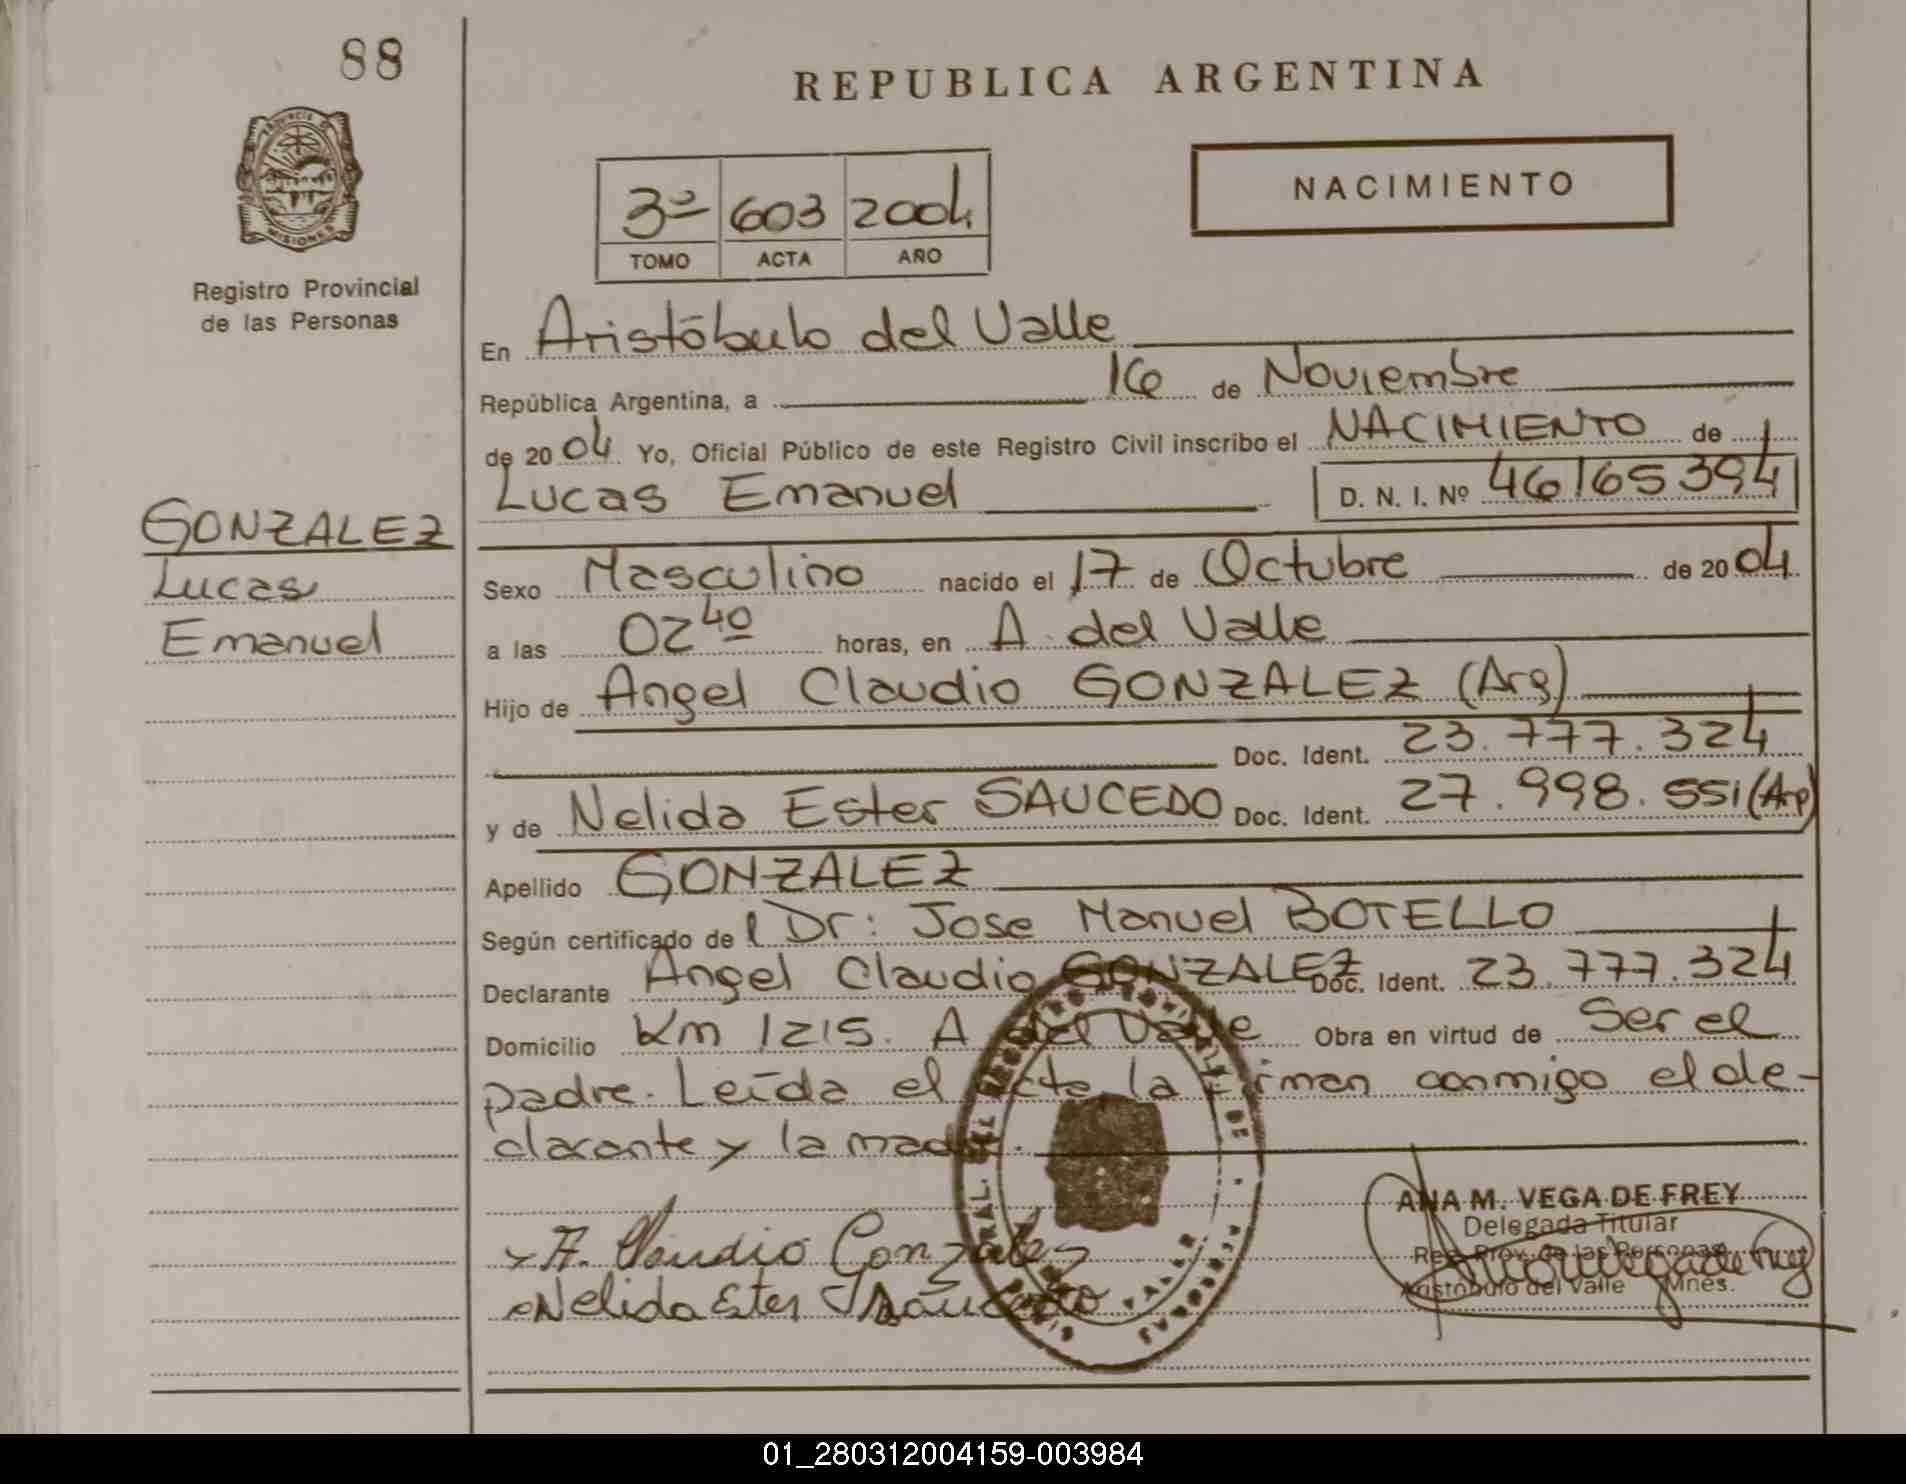 88
REPUBLICA ARGENTINA
PROVINCIA D
MISIONES
NACIMIENTO
3º 603 2004
TOMO ACTA AÑO
Registro Provincial
de las Personas
En Aristóbulo del Valle
República Argentina, a 16 de Noviembre
de 2004 Yo, Oficial Público de este Registro Civil inscribo el NACIMIENTO de
Lucas Emanuel D. N. I. Nº 46165394
GONZALEZ
Lucas
Emanuel
Sexo Masculino nacido el 17 de Octubre de 2004
a las 02 40 horas, en A. del Valle
Hijo de Angel Claudio GONZALEZ (Arg)
Doc. Ident. 23.777.324
y de Nelida Ester SAUCEDO Doc. Ident. 27.998.551 (Arg)
Apellido GONZALEZ
Según certificado del Dr: Jose Manuel BOTELLO
Declarante Angel Claudio GONZALEZ Doc. Ident. 23.777.324
Domicilio Km 1215. A del Valle Obra en virtud de Ser el
padre. Leída el acta la firman conmigo el de-
clarante y la madre.
A. Claudio Gonzalez
Nelida Ester Saucedo
ANA M. VEGA DE FREY
Delegada Titular
Reg. Prov. de las Personas
Aristóbulo del Valle Mnes.
01_280312004159-003984